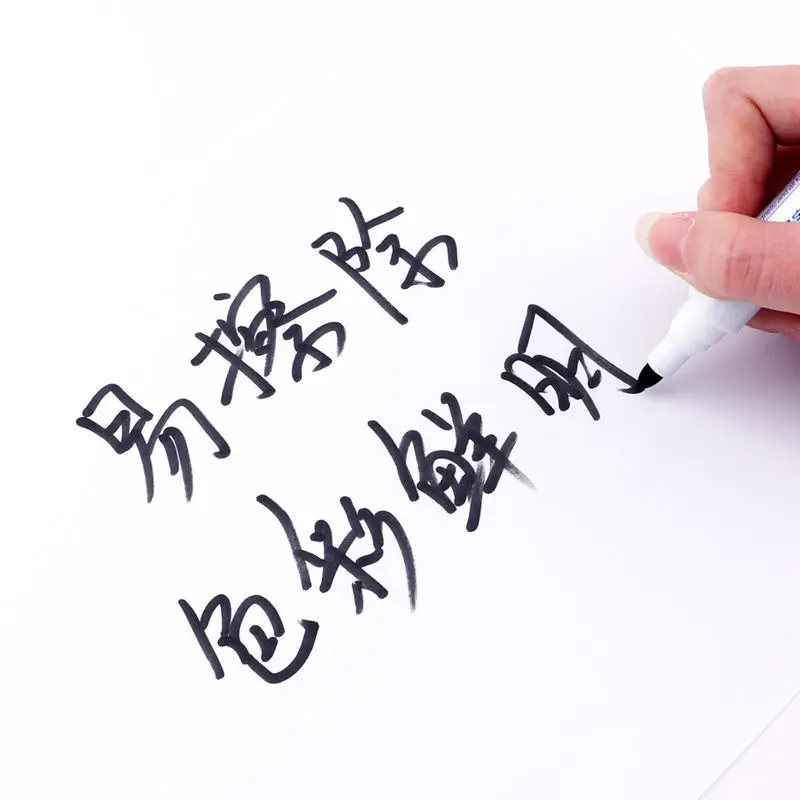 易擦除
色彩鲜明